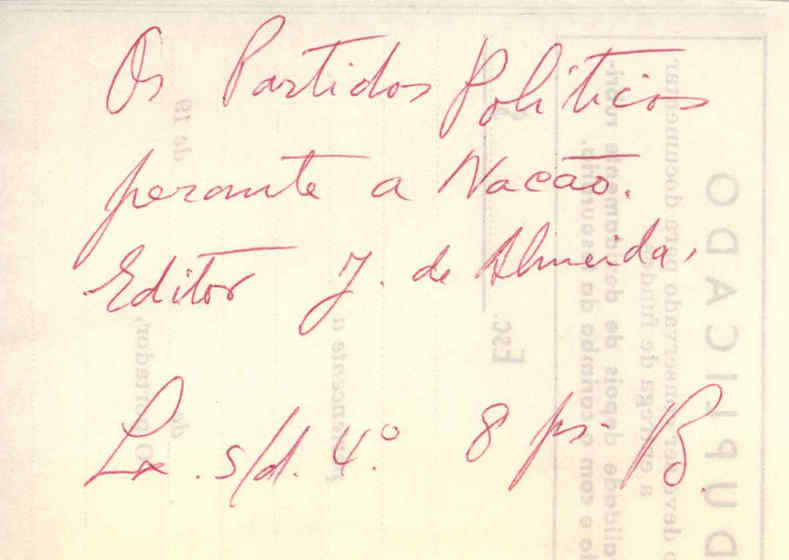 Os Partidos Políticos
perante a Nação.
Editor J. de Almeida,
Lx. s/d. 4.º 8 ps. B.